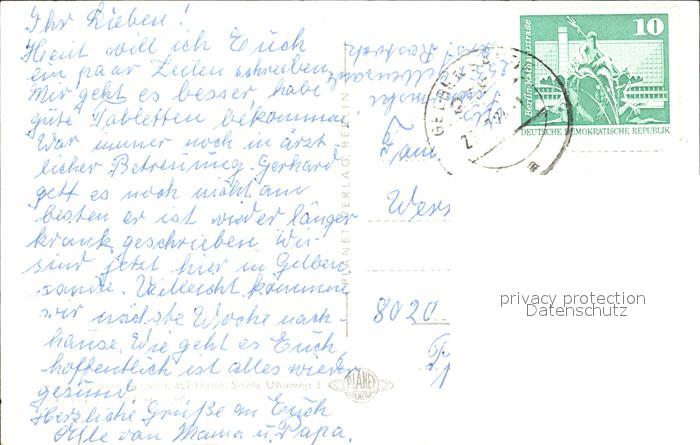 Ihr Lieben!
Heut will ich Euch
ein paar Zeilen schreiben
Mir geht es besser habe
gute Tabletten bekommen
War immer noch in ärzt
licher Betreuung. Gerhard
gett es noch nicht am
besten er ist wieder länger
krank geschrieben. Wir
sind jetzt hier in Gelben
sande. Vielleicht kommen
wir nächste Woche nach
hause. Wie geht es Euch
hoffentlich ist alles wieder
gesund.
Herzliche Grüße an Euch
Alle von Mama u. Papa.
PLANET-VERLAG BERLIN
402 Halle/Saale Uhuweg 3
PLANET
Fam
Wers
8020
10
Berlin-Rathausstraße
DEUTSCHE DEMOKRATISCHE REPUBLIK
privacy protection
Datenschutz